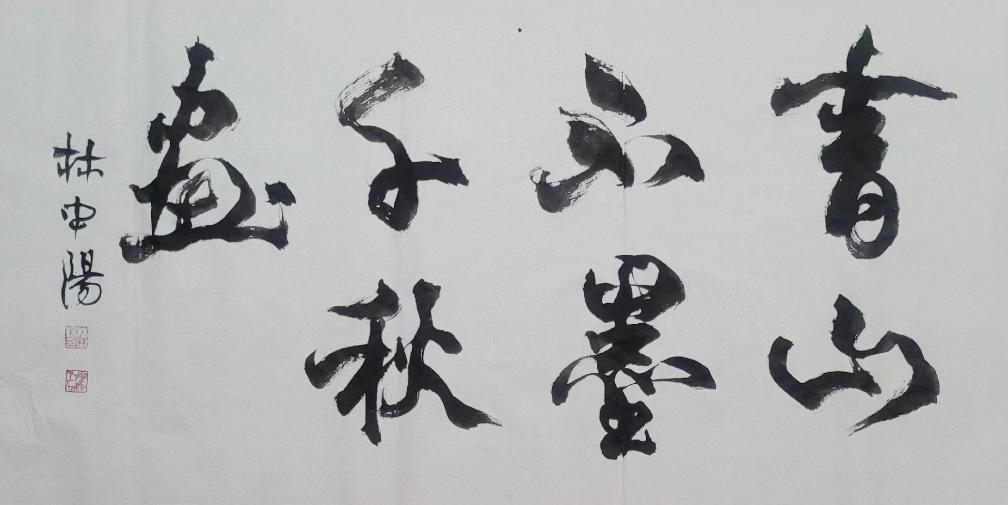 青山
不墨
千秋
畫
林中陽